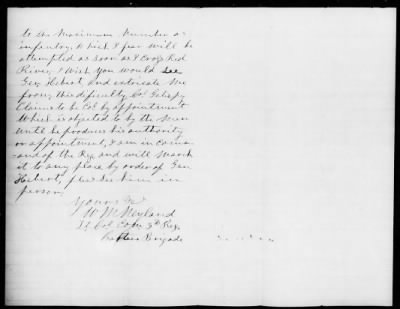 to the Maximum Number as
infentry, Which I fear will be
attempted as soon as I cross Red
River, I Wish you would See
Gen Hebert and extricate me
from this dificulty Col Gilespy
Claims to be Col by appointment
Which is objected to by the men
until he produces his authority
or appointment, I am in com
and of the Reg and will march
it to any place by order of Gen
Hebert, plese See him in
person
Yours &c
W M Neyland
Lt Col Com Reg
Brigade